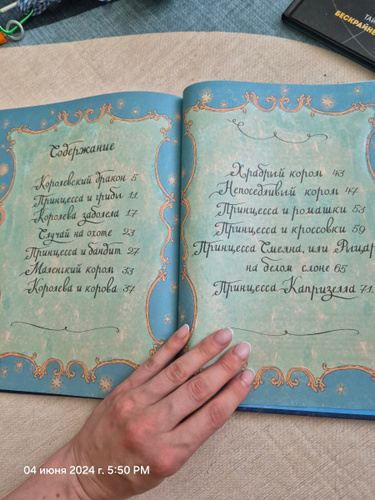 Содержание
Королевский дракон 5
Принцесса и грибы 11
Королева заболела 17
Случай на охоте 23
Принцесса и бандит 27
Маленький король 33
Королева и корова 37
Храбрый король 43
Непоседливый король 47
Принцесса и ромашки 53
Принцесса и кроссовки 59
Принцесса Смеяна, или Рыцарь
на белом слоне 65
Принцесса Капризелла 71
04 июня 2024 г. 5:50 PM